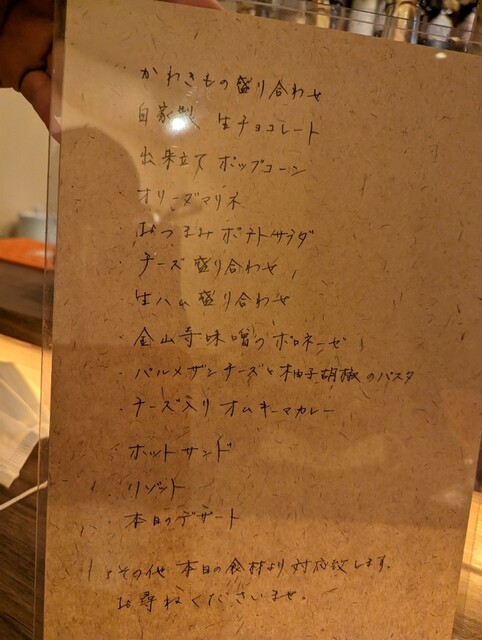 ・かわきもの盛り合わせ
自家製 生チョコレート
・出来立て ポップコーン
・オリーブマリネ
・おつまみポテトサラダ
・チーズ盛り合わせ
・生ハム盛り合わせ
・金山寺味噌のボロネーゼ
・パルメザンチーズと柚子胡椒のパスタ
・チーズ入り オムキーマカレー
・ホットサンド
・リゾット
・本日のデザート
その他 本日の食材より対応致します。
お尋ねくださいませ。